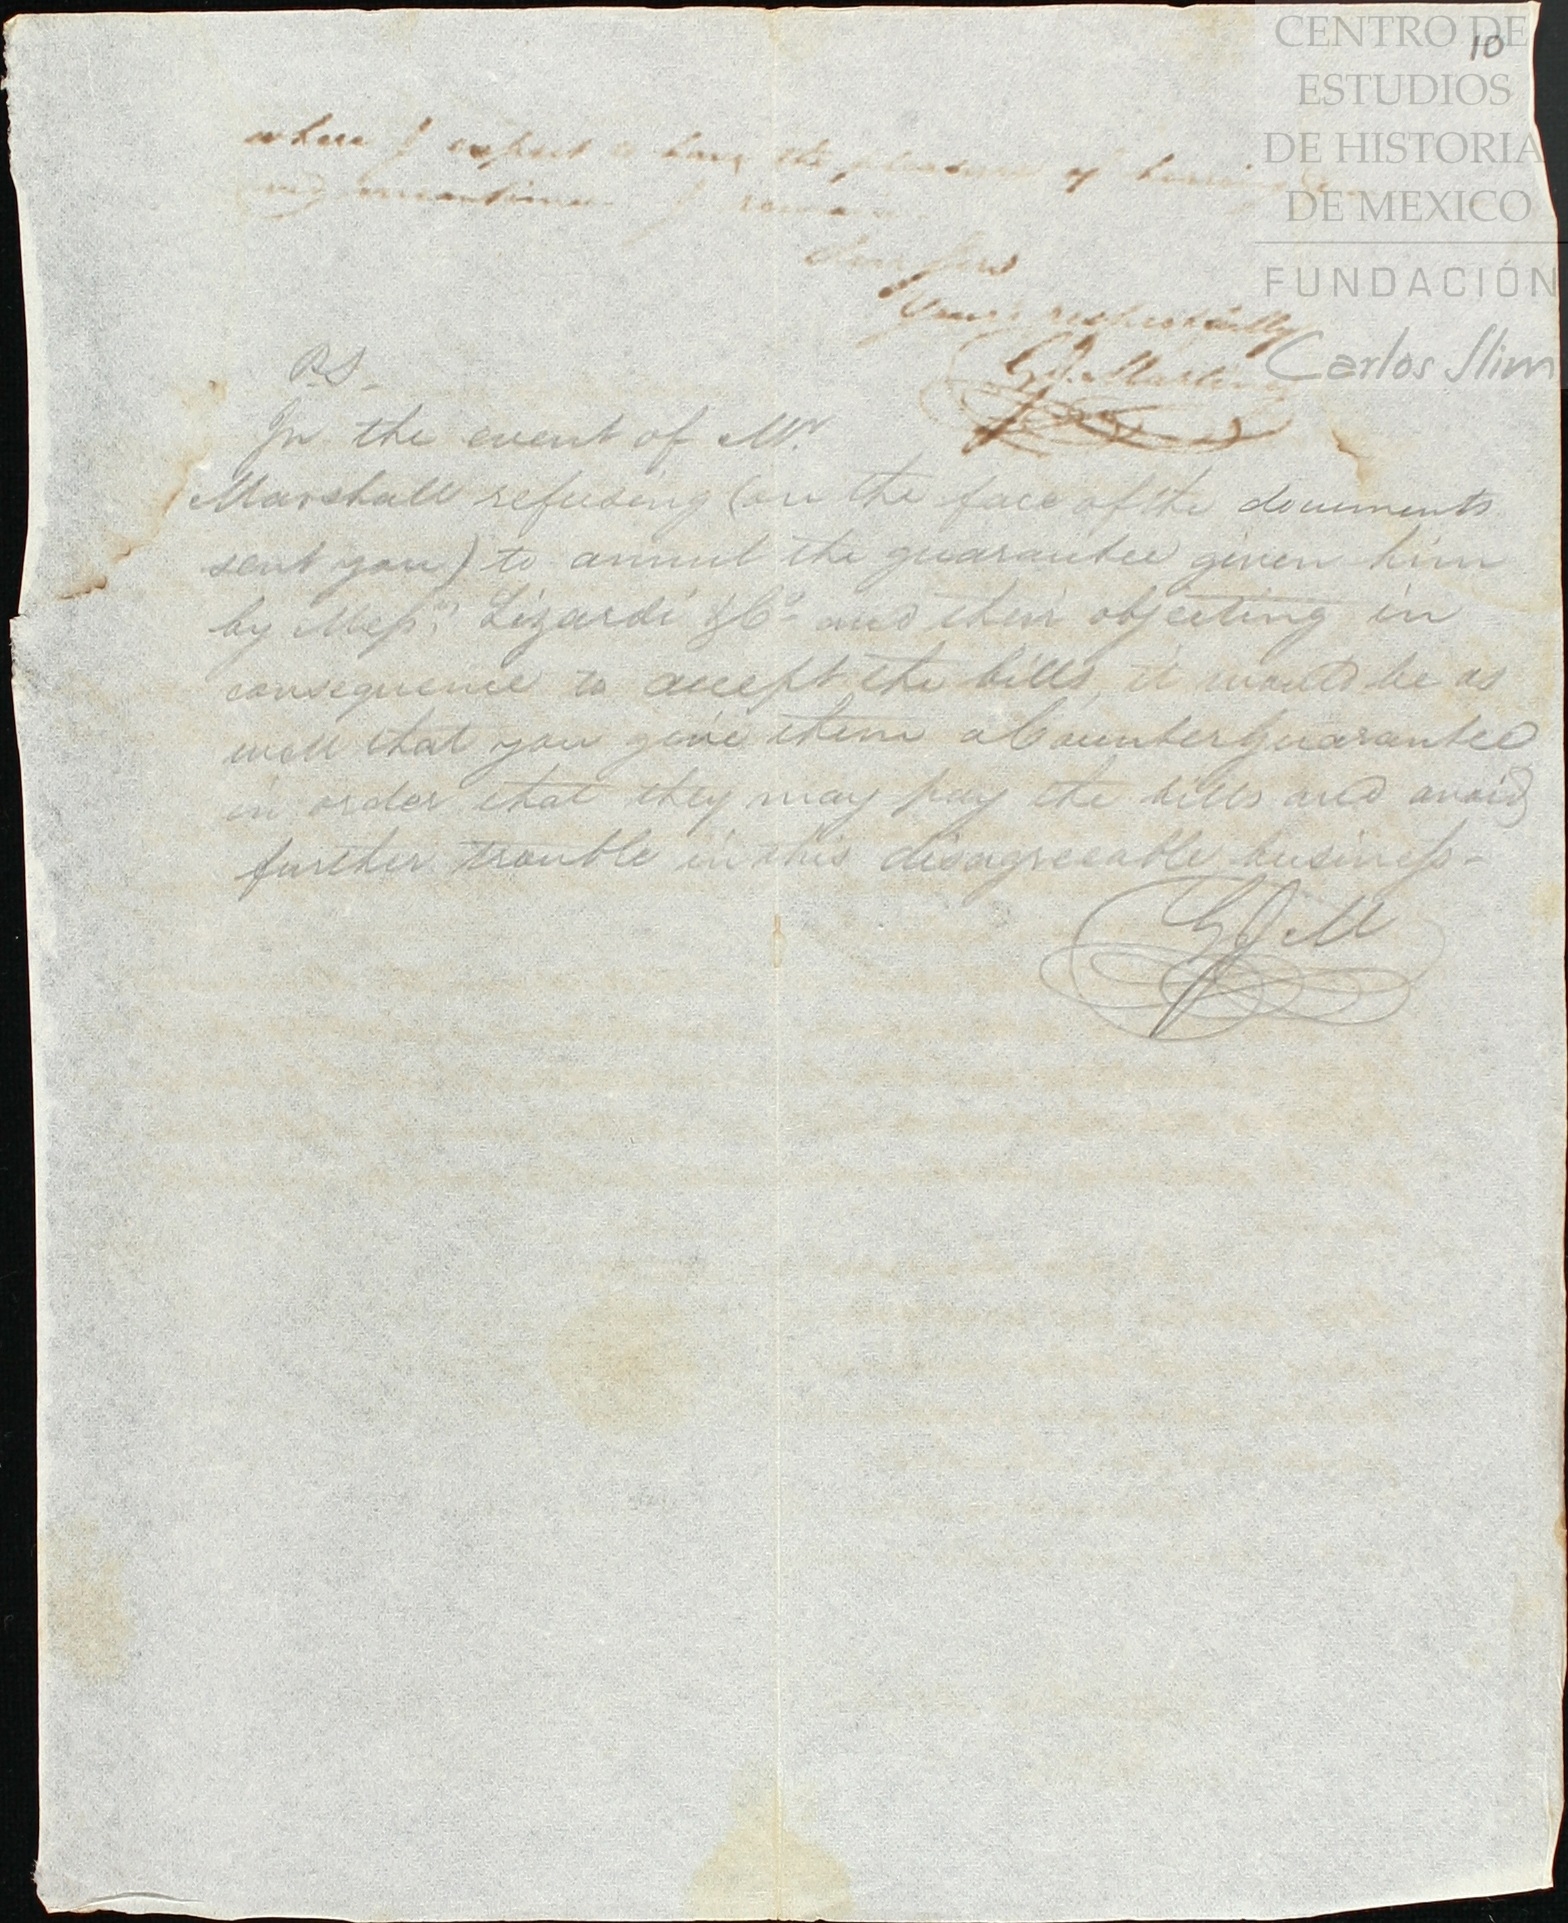 10
CENTRO DE
ESTUDIOS
DE HISTORIA
DE MEXICO
FUNDACIÓN
Carlos Slim
where I expect to have the pleasure of
meantime I remain
Dear Sir
Yours respectfully
G. J. Martine
P.S.
In the event of Mr.
Marshall refusing (on the face of the documents
sent you) to annul the guarantee given him
by Mess.rs Lizardi & Co. and their objecting in
consequence to accept the bills, it would be as
well that you give them a Counter Guarantee
in order that they may pay the bills and avoid
further trouble in this disagreeable business-
G J M